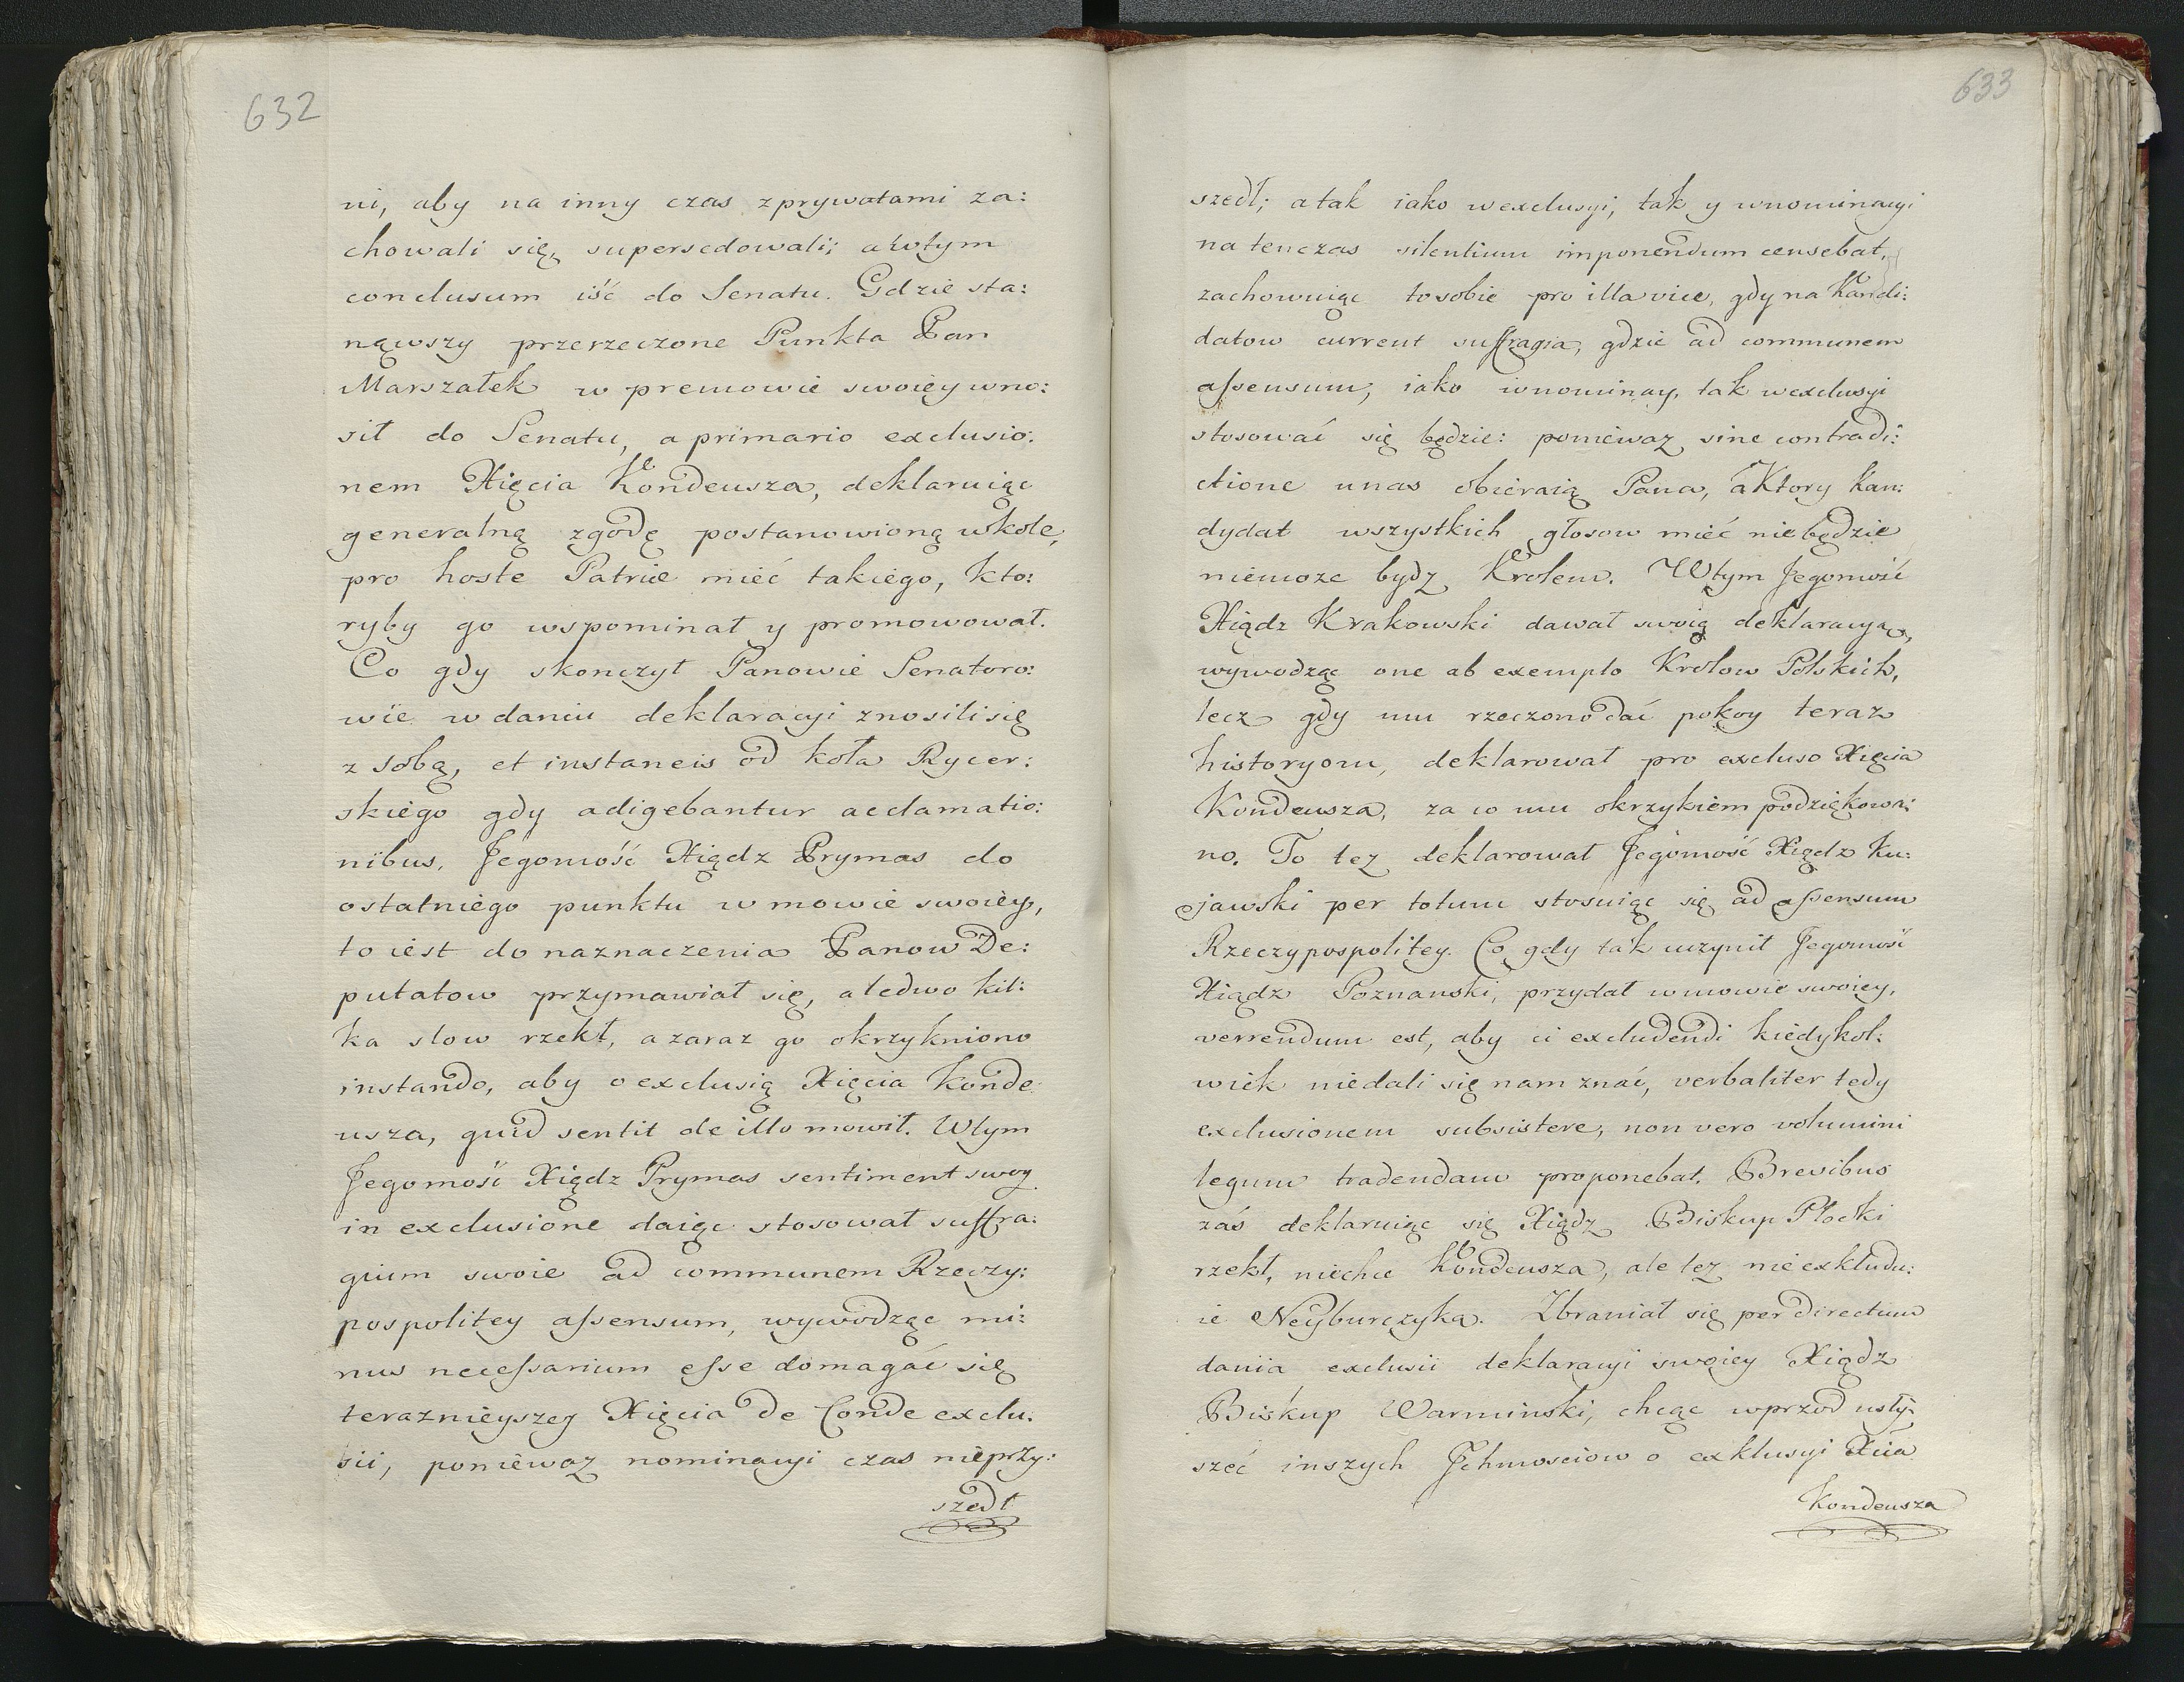 632
ni, aby na inny czas zprywatami za:
chowali się, supersedowali; a wtym
conclusum iść do Senatu. Gdzie sta:
nąwszy przerzeczone Punkta Pan
Marszałek w premowie swoiey wno:
sił do Senatu, a primario exclusio:
nem Xięcia Kondeusza, deklaruiąc
generalną zgodę postanowioną wkole,
pro hoste Patriæ mieć takiego, kto:
ryby go wspominał y promowował.
Co gdy skonczył Panowie Senatoro:
wie w daniu deklaracyi znosili się
z sobą, et instancis od koła Rycer:
skiego gdy adigebantur acclamatio:
nibus, Jegomość Xiądz Prymas do
ostatniego punktu w mowie swoiey,
to iest do naznaczenia Panow De:
putatow przymawiał się, aledwo kil:
ka slow rzekł, a zaraz go okrzykniono
instando, aby o exclusią Xięcia Konde
usza, quid sentit de illo mowił. Wtym
Jegomość Xiądz Prymas sentiment swoy
in exclusione daiąc stosował suffra:
gium swoie ad communem Rzeczy:
pospolitey assensum, wywodząc mi:
nus necessarium esse domagać się
teraznieyszey Xięcia de Conde exclu:
sii, poniewaz nominacyi czas nieprzy:
szedł
633
szedł; a tak iako wexclusyi, tak y wnominacyi
na tenczas silentium imponendum censebat,
zachowuiąc to sobie pro illa vice, gdy na Kandi:
datow current suffragia, gdzie ad communem
assensum, iako wnominacy, tak wexclusyi
stosować się będzie: poniewaz sine contradi:
ctione unas obieraią Pana, a Ktory Kan:
dydat wszystkich głosow mieć niebędzie
niemoze bydz Krolem. Wtym Jegomość
Xiądz Krakowski dawał swoią deklaracyą,
wywodząc one ab exemplo Krolow Polskich,
lecz gdy mu rzeczono dać pokoy teraz
historyom, deklarował pro excluso Xięcia
Kondeusza, za co mu okrzykiem podziękowa:
no. To tez deklarował Jegomość Xiądz Ku:
jawski per totum stosuiąc się ad assensum
Rzeczypospolitey. Co gdy tak uczynił Jegomość
Xiądz Poznanski, przydał wmowie swoiey,
verrendum est, aby ci excludendi kiedykol:
wiek niedali się nam znać, verbaliter tedy
exclusionem subsistere, non vero volumini
legum tradendam proponebat. Brevibus
zaś deklaruiąc się Xiądz Biskup Płocki
rzekł, niechce Kondeusza, ale tez nie exkludu:
ie Neyburczyka. Zbraniał się per directum
dania exclusii deklaracyi swoiey Xiądz
Biskup Warminski, chcąc wprzod usły:
szeć inszych Jchmosciow o exklusyi Xcia
Kondeusza